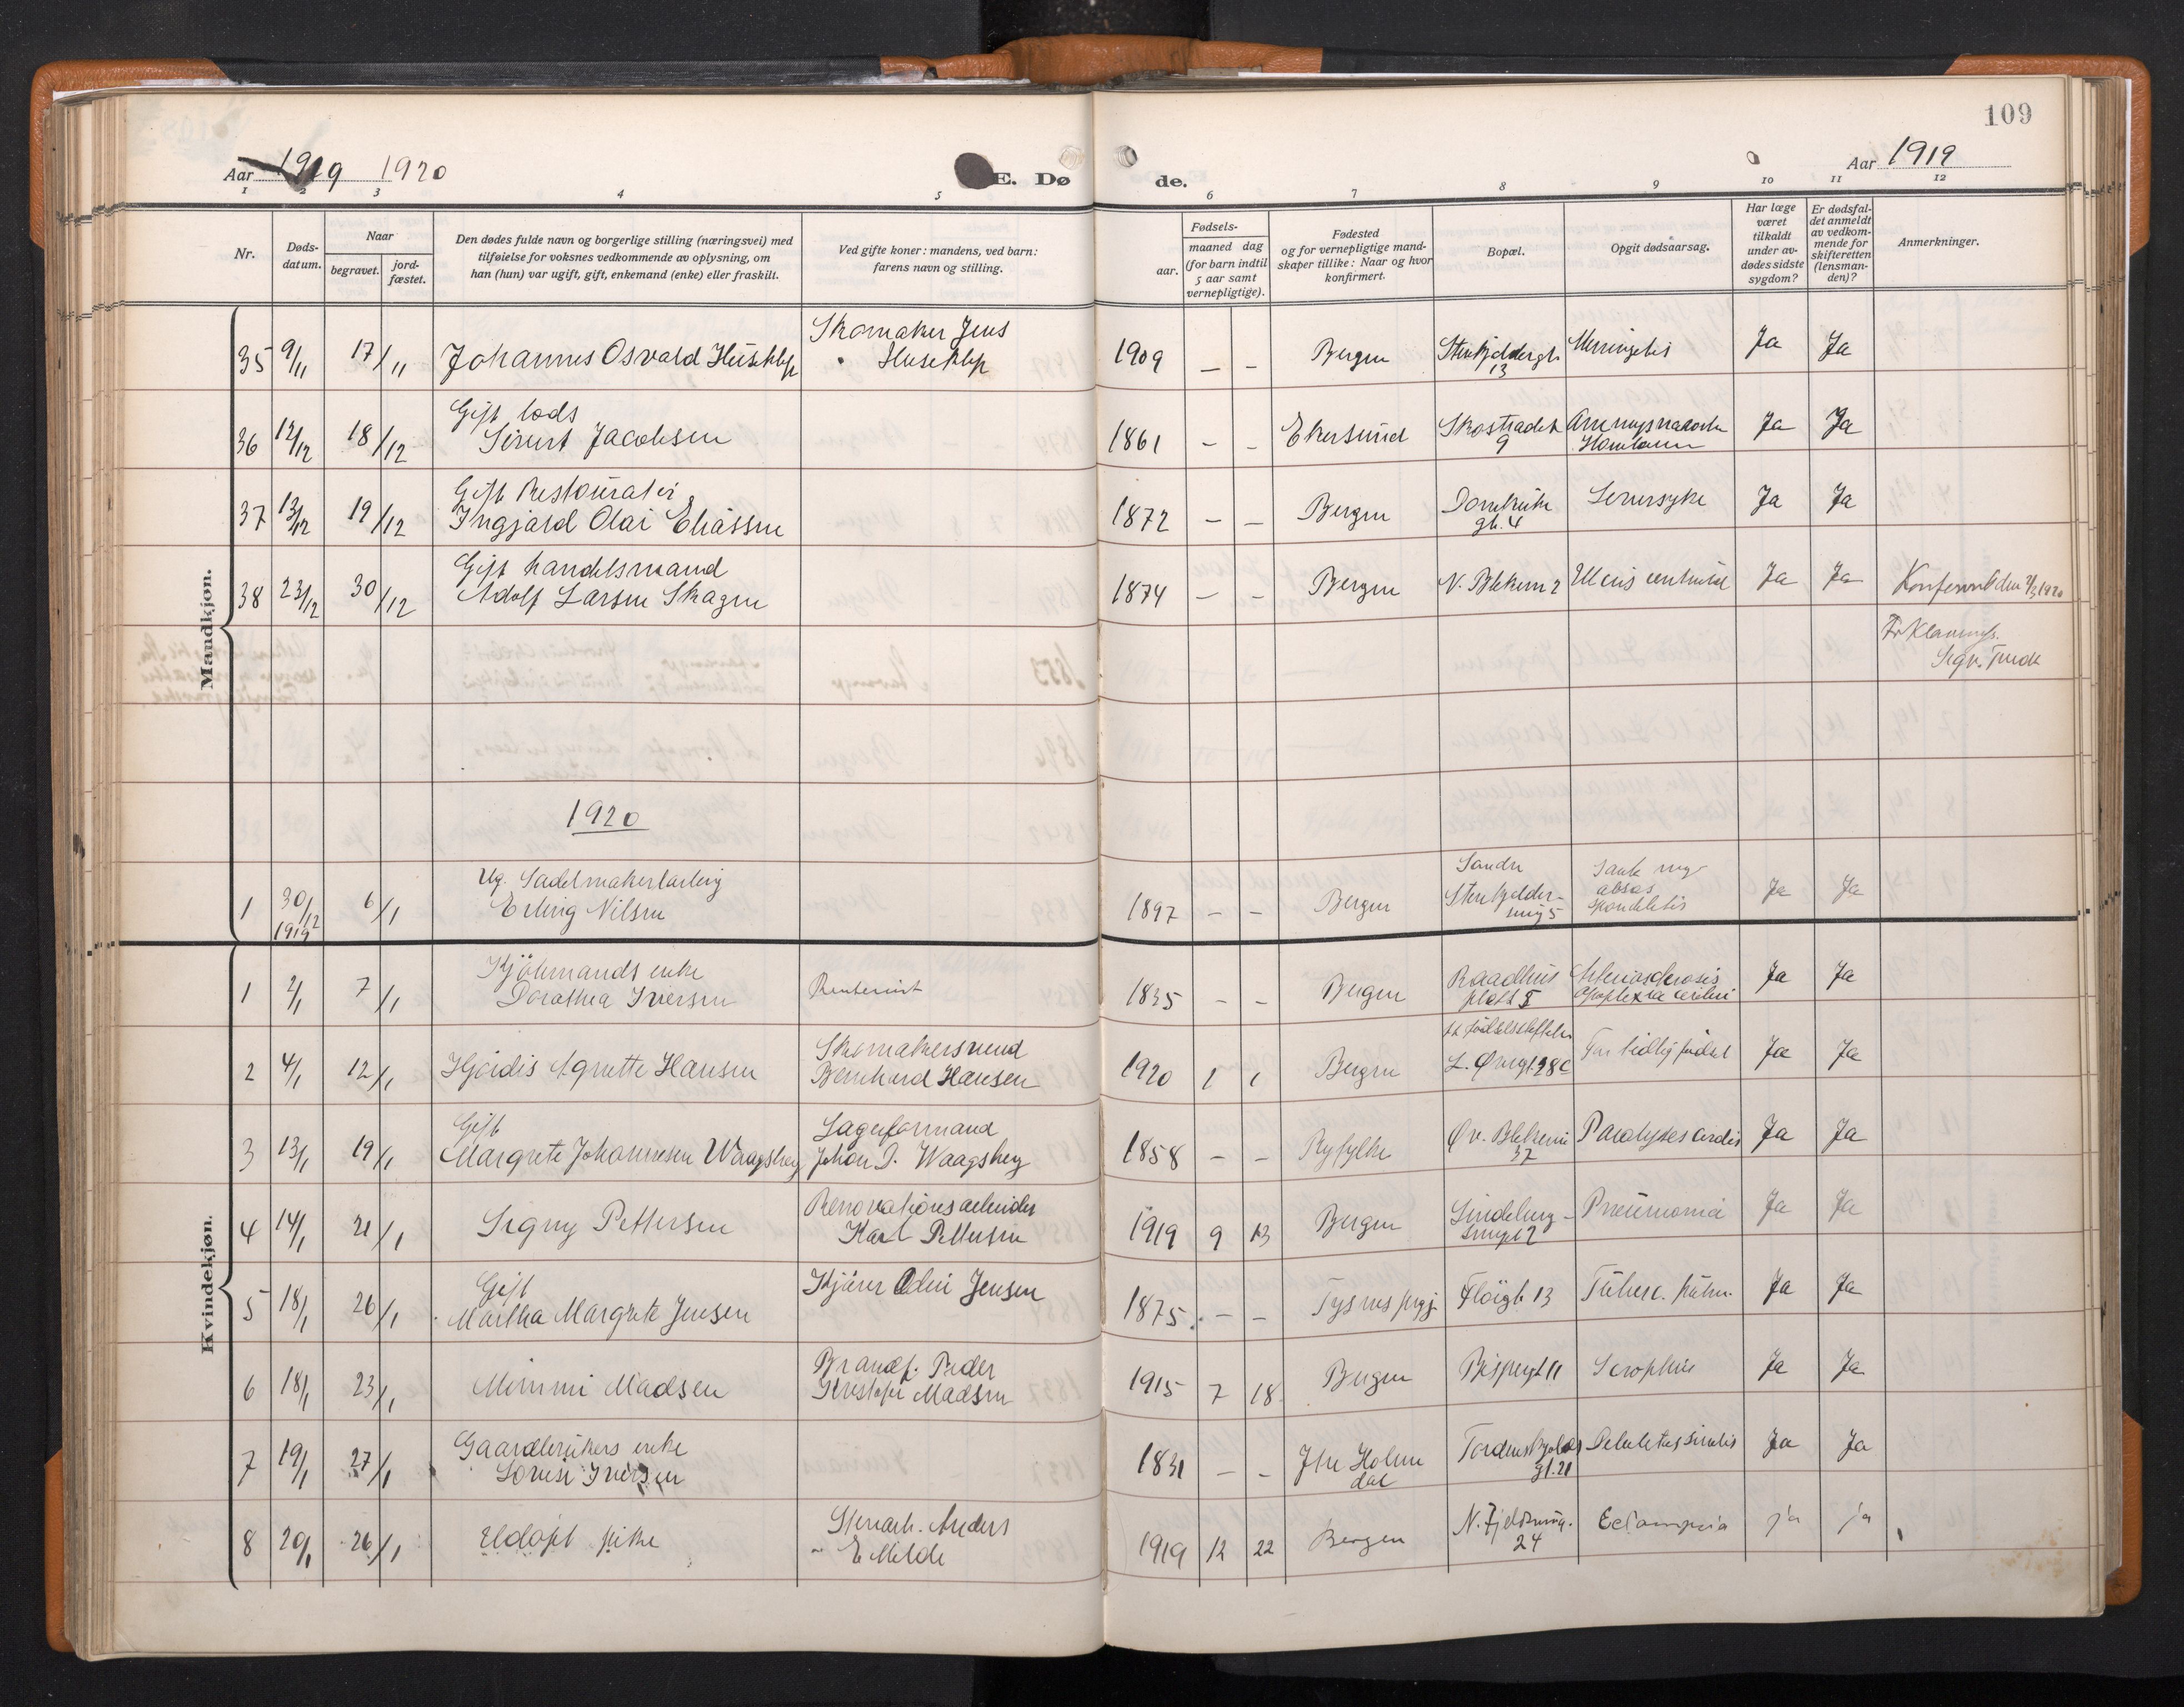 109
Aar 1919 1920
E. Døde.
Aar 1919
1 2 3 4 5 6 7 8 9 10 11 12
Nr.
Døds-datum.
Naar
begravet.
jord-fæstet.
Den dødes fulde navn og borgerlige stilling (næringsvei) med
tilføielse for voksnes vedkommende av oplysning, om
han (hun) var ugift, gift, enkemand (enke) eller fraskilt.
Ved gifte koner: mandens, ved barn:
farens navn og stilling.
Fødsels-
aar.
maaned dag
(for barn indtil
5 aar samt
vernepligtige).
Fødested
og for vernepligtige mand-
skaper tillike: Naar og hvor
konfirmert.
Bopæl.
Opgit dødsaarsag.
Har læge
været
tilkaldt
under av-
dødes sidste
sygdom?
Er dødsfal-
det anmeldt
av vedkom-
mende for
skifteretten
(lensman-
den)?
Anmerkninger.
Mandkjøn.
Skomaker Jens
35 9/11 17/11 Johannes Osvald Huseklep " Huseklep 1909 – – Bergen 13 Ja Ja
Gift lods
36 12/12 18/12 Sivert Jacobsen 1861 – – Ekersund Skostrædet 9 Ja Ja
Gift Restauratør
37 13/12 19/12 Ingjard Olai Eliassen 1872 – – Bergen Domkirke gt. 4 Leversyke Ja Ja
Gift handelsmand
38 23/12 30/12 Adolf Larsen Skagen 1874 – – Bergen N. Blekevei 2 Ulcus ventriculi Ja Ja
1920
Ug. Sadelmakerlærling
1 30/12 1919 6/1 Erling Nilsen 1897 – – Bergen Søndre Stenkjelder-smug 5 Ja Ja
Kvindekjøn.
Kjøbmands enke
1 2/1 7/1 Dorothea Iversen Rentenist 1835 – – Bergen Raadhus plass 5 Arteriosclerosis apoplexia cerebri Ja Ja
Skomakersvend
2 4/1 12/1 Hjørdis Agnette Hansen Bernhard Hansen 1920 1 1 Bergen L. Øvregt. 28c For tidlig født Ja Ja
Gift Lagerformand
3 13/1 19/1 Margrete Johannesen Waagsbøy Johan P. Waagsbøy 1858 – – Ryfylke Øv. Blekevei 37 Paralyses cordis Ja Ja
Renovationsarbeider
4 14/1 21/1 Signy Pettersen Karl Pettersen 1919 9 13 Bergen Lindeberg-smuget 2 Pneumonia Ja Ja
Gift Kjører Odin Jensen
5 18/1 26/1 Martha Margrete Jensen 1875 – – Tysnes prgj. Fløigt 13 Tuberc. pulm. Ja Ja
Brandf. Peder
6 18/1 23/1 Mimmi Madsen Kristofer Madsen 1915 7 18 Bergen Bispegt 11 Scrophus Ja Ja
Gaardbrukers enke
7 19/1 27/1 Lovise Iversen 1831 – – Ytre Holmedal Tordenskjolds gt. 21 Debilitas senilis Ja Ja
Stenarb. Anders
8 20/1 26/1 Udøpt pike " E Melde 1919 12 22 Bergen N. Fjeldsmug. 24 Eclampsia ja ja